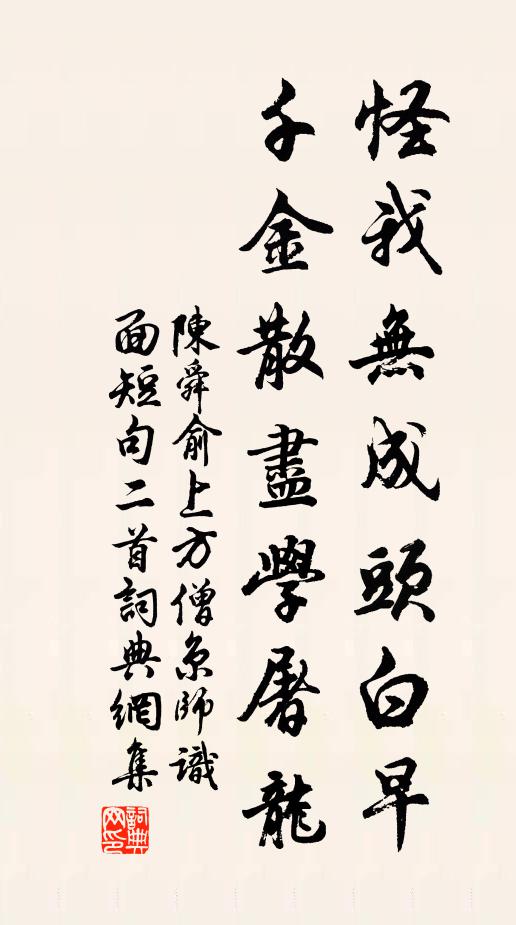 怪我無成頭白早
千金散盡學屠龍
陳舜俞上方僧京師識
面短句二首詞典網集
詞典網印